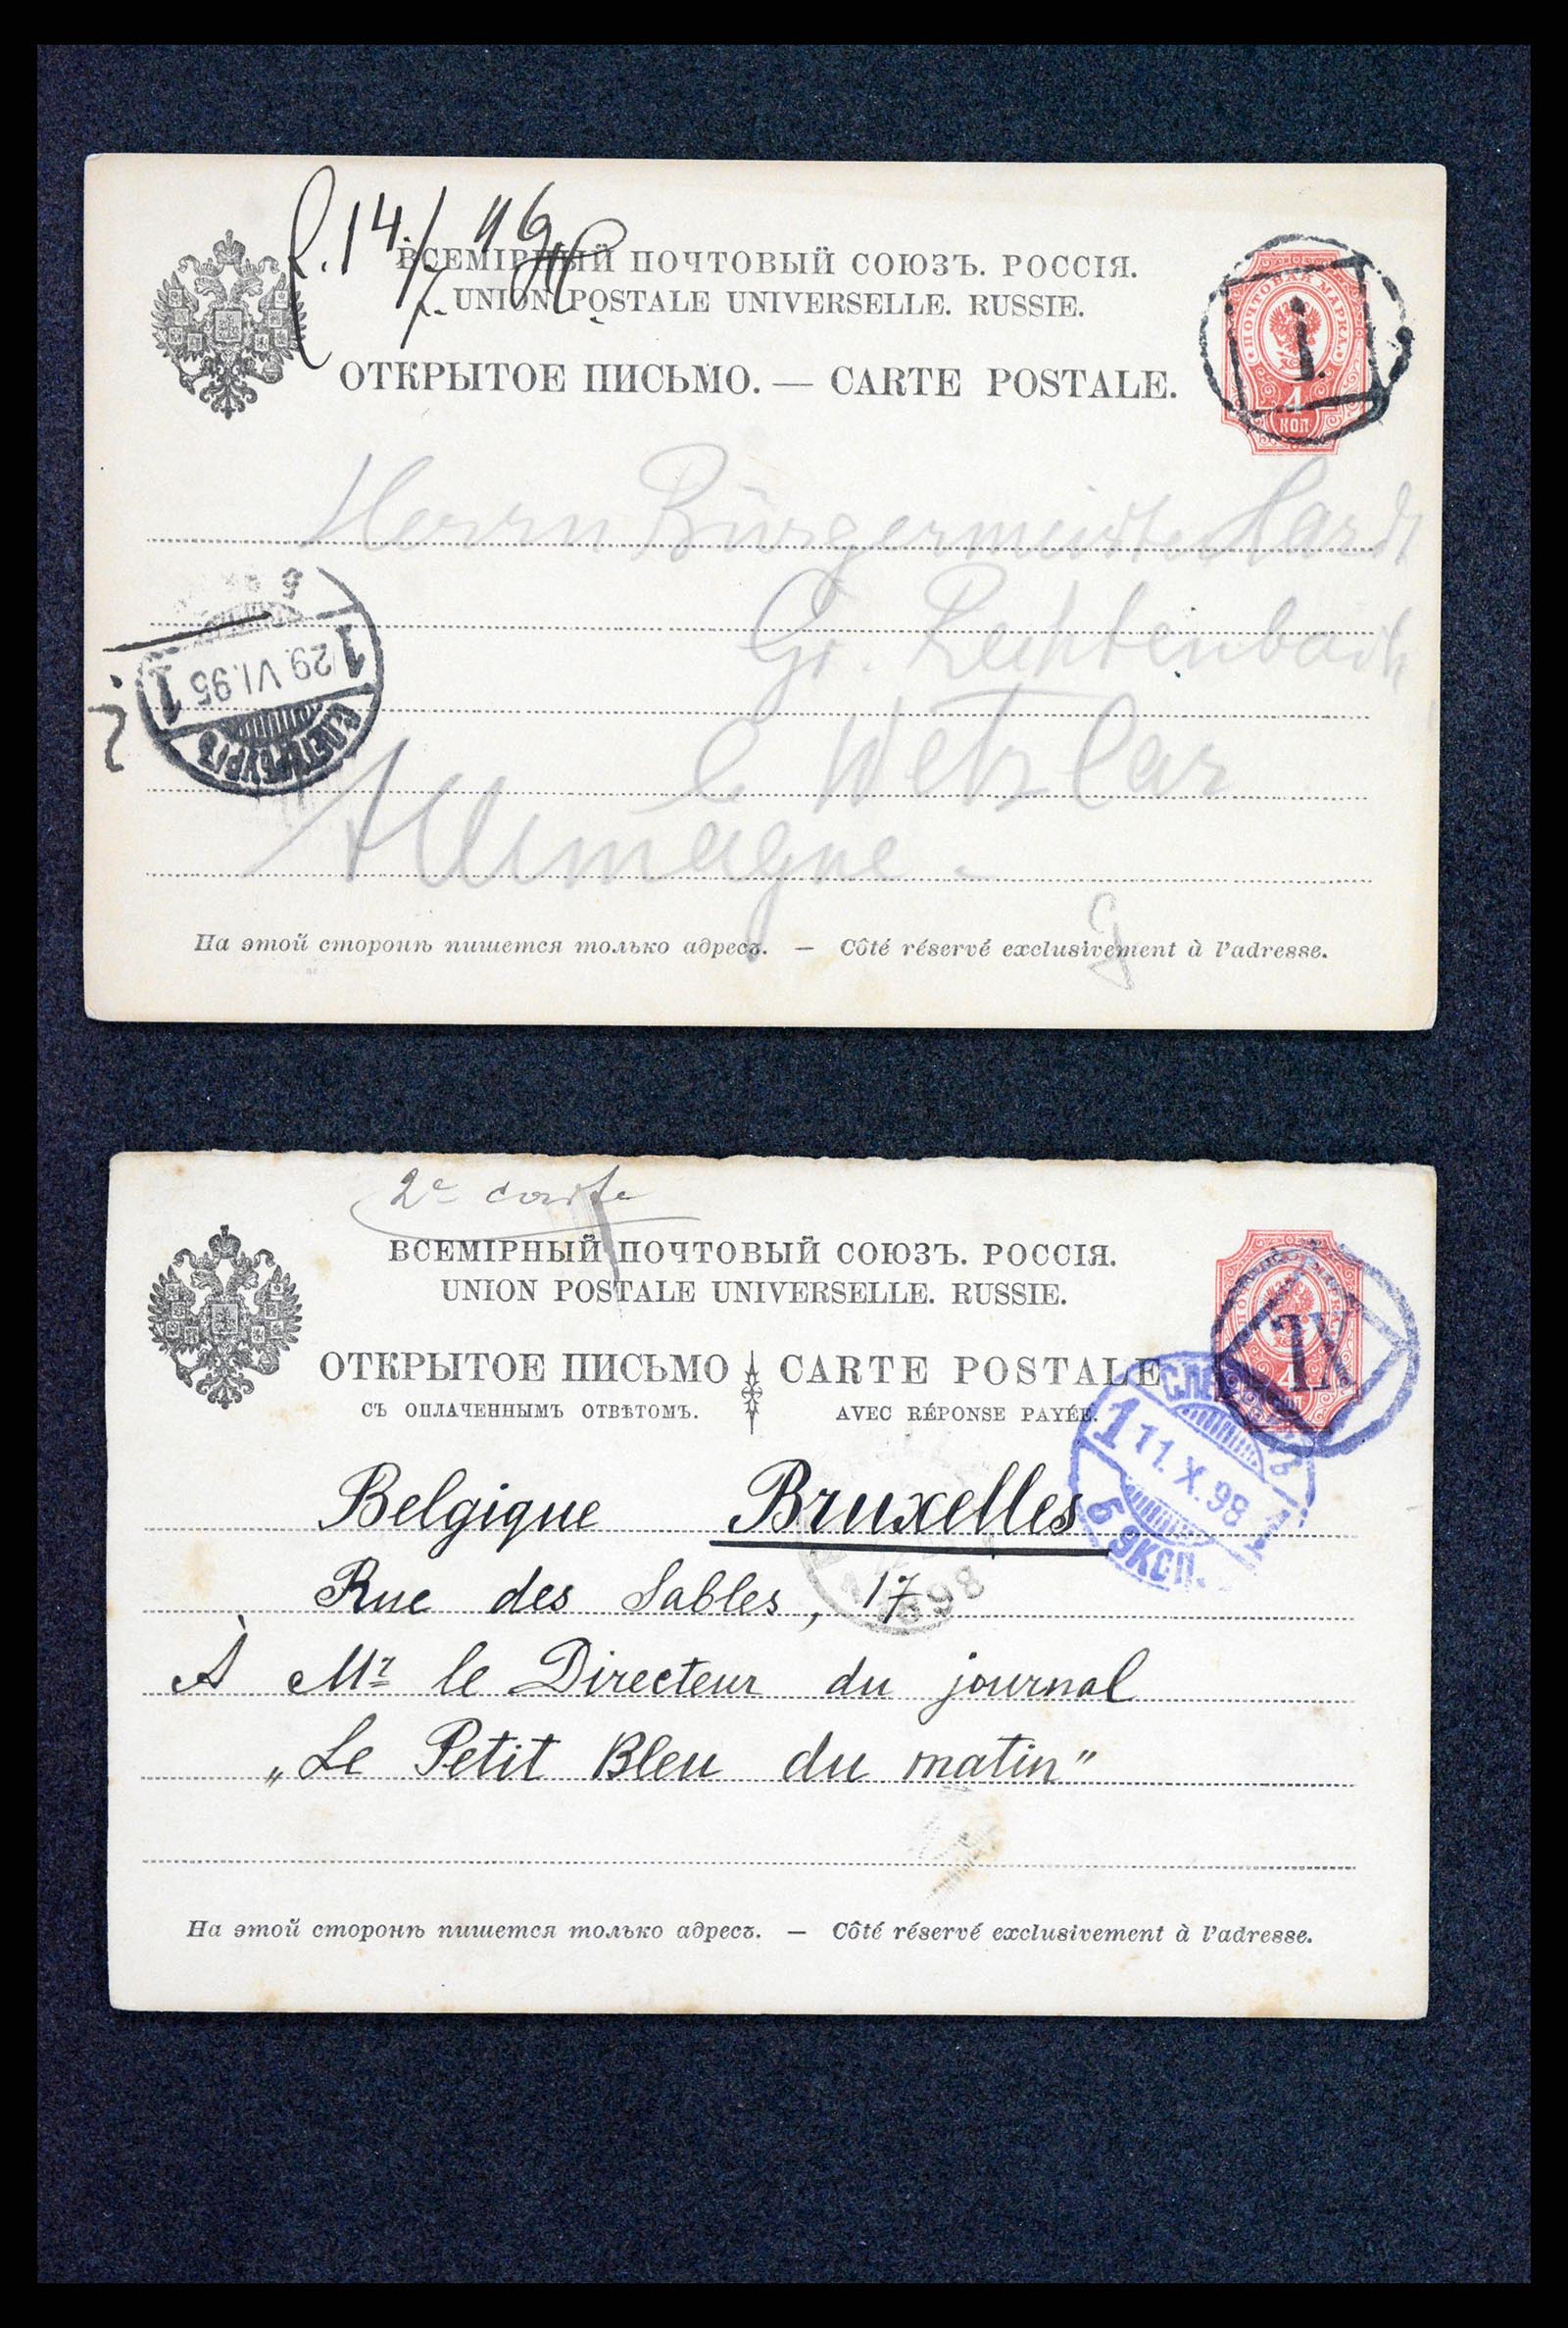 f. 14./7. 96
ВСЕМІРНЫЙ ПОЧТОВЫЙ СОЮЗЪ. РОССІЯ.
UNION POSTALE UNIVERSELLE. RUSSIE.
ОТКРЫТОЕ ПИСЬМО. — CARTE POSTALE.
ПОЧТОВАЯ МАРКА
1.
4
КОП
Herrn Bürgermeister
Gr. Rechtenbach
b Wetzlar
Allemagne
1 29.VI.95 1
С.ПЕТЕРБУРГЪ
На этой сторонѣ пишется только адресъ. — Côté réservé exclusivement à l'adresse.
2e carte
ВСЕМІРНЫЙ ПОЧТОВЫЙ СОЮЗЪ. РОССІЯ.
UNION POSTALE UNIVERSELLE. RUSSIE.
ОТКРЫТОЕ ПИСЬМО CARTE POSTALE
СЪ ОПЛАЧЕННЫМЪ ОТВѢТОМЪ. AVEC RÉPONSE PAYÉE.
IX
4
КОП
1 11.X.98 1
5 ЭКСП.
Belgique Bruxelles
1898
Rue des Sables, 17
À Mr le Directeur du journal
„Le Petit Bleu du matin"
На этой сторонѣ пишется только адресъ. — Côté réservé exclusivement à l'adresse.